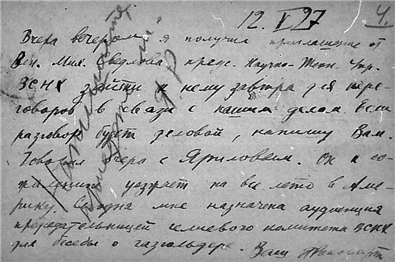 12. V 27 4.
Вчера вечером я получил приглашение от
Вен. Мих. Свердлова, предс. Научно-Техн. Упр.
ВСНХ зайти к нему завтра для пере-
говоров в связи с нашим делом. Если
разговор будет деловой, напишу Вам.
Говорил вчера с Яриловым. Он к со-
жалению уезжает на все лето в Аме-
рику. Сегодня мне назначена аудиенция
председательницей комитета ВСНХ
для беседы о газгольдере. Ваш